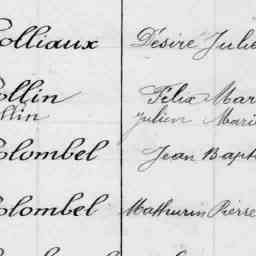 olliaux Désiré Julie
ollin Félix Mar
ollin Julien Mari
olombel Jean Bapt
olombel Mathurin Pierre